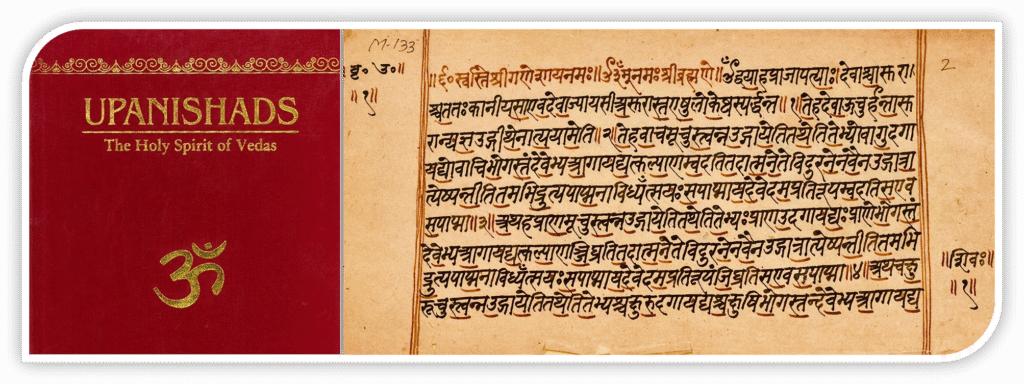 UPANISHADS
The Holy Spirit of Vedas
ॐ
M-133
बृ॰ उ॰॥
॥१॥
2
॥ स्वस्तिश्रीगणेशायनमः॥ नमःश्रीब्रह्मणे॥ द्वयाहप्राजापत्याः देवाश्चासुरा
श्चततःकानीयसाएवदेवाज्यायसाअसुरास्तएषुलोकेष्वस्पर्द्धन्त॥१॥तेहदेवाऊचुर्हन्तासु
रान्यज्ञउद्गीथेनात्ययामेति॥२॥तेहवाचमूचुस्त्वन्नउद्गायेतितथेतितेभ्योवागुदगा
यद्योवाचिभोगस्तंदेवेभ्यआगायद्यत्कल्याणम्वदतितदात्मनेतेविदुरनेनवैनउद्गात्रा
त्येष्यन्तीतितमभिद्रुत्यपाप्मनाविध्यँत्सयःसपाप्मायदेवेदमप्रतिरूपम्वदतिसएव
सपाप्मा॥३॥अथहप्राणमूचुस्त्वन्नउद्गायेतितथेतितेभ्यःप्राणउदगायद्यःप्राणेभोगस्तं
देवेभ्यआगायद्यत्कल्याणञ्जिघ्रतितदात्मनेतेविदुरनेनवैनउद्गात्रात्येष्यन्तीतितमभि
द्रुत्यपाप्मनाविध्यँत्सयःसपाप्मायदेवेदमप्रतिरूपंजिघ्रतिसएवसपाप्मा॥४॥अथचक्षु
रूचुस्त्वन्नउद्गायेतितथेतितेभ्यश्चक्षुरुदगायद्यश्चक्षुषिभोगस्तन्देवेभ्यआगायद्य
॥शिवः॥
॥१॥